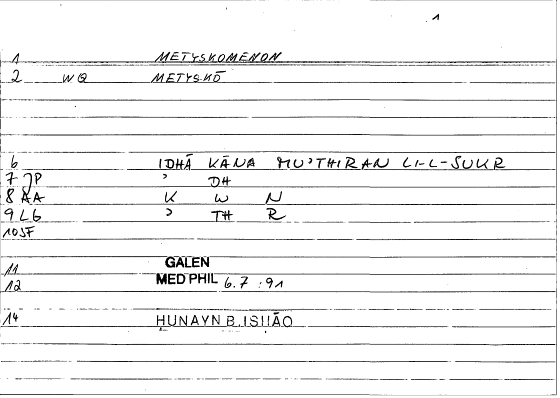 1
1 METYSKOMENON
2 WQ METYSKŌ
6 IDHĀ KĀNA MU'THIRAN LI-L-SUKR
7 JP ' DH
8 AA K W N
9 LG ' TH R
10 SF
11 GALEN
12 MED PHIL 6.7 :91
14 ḤUNAYN B. ISḤĀQ